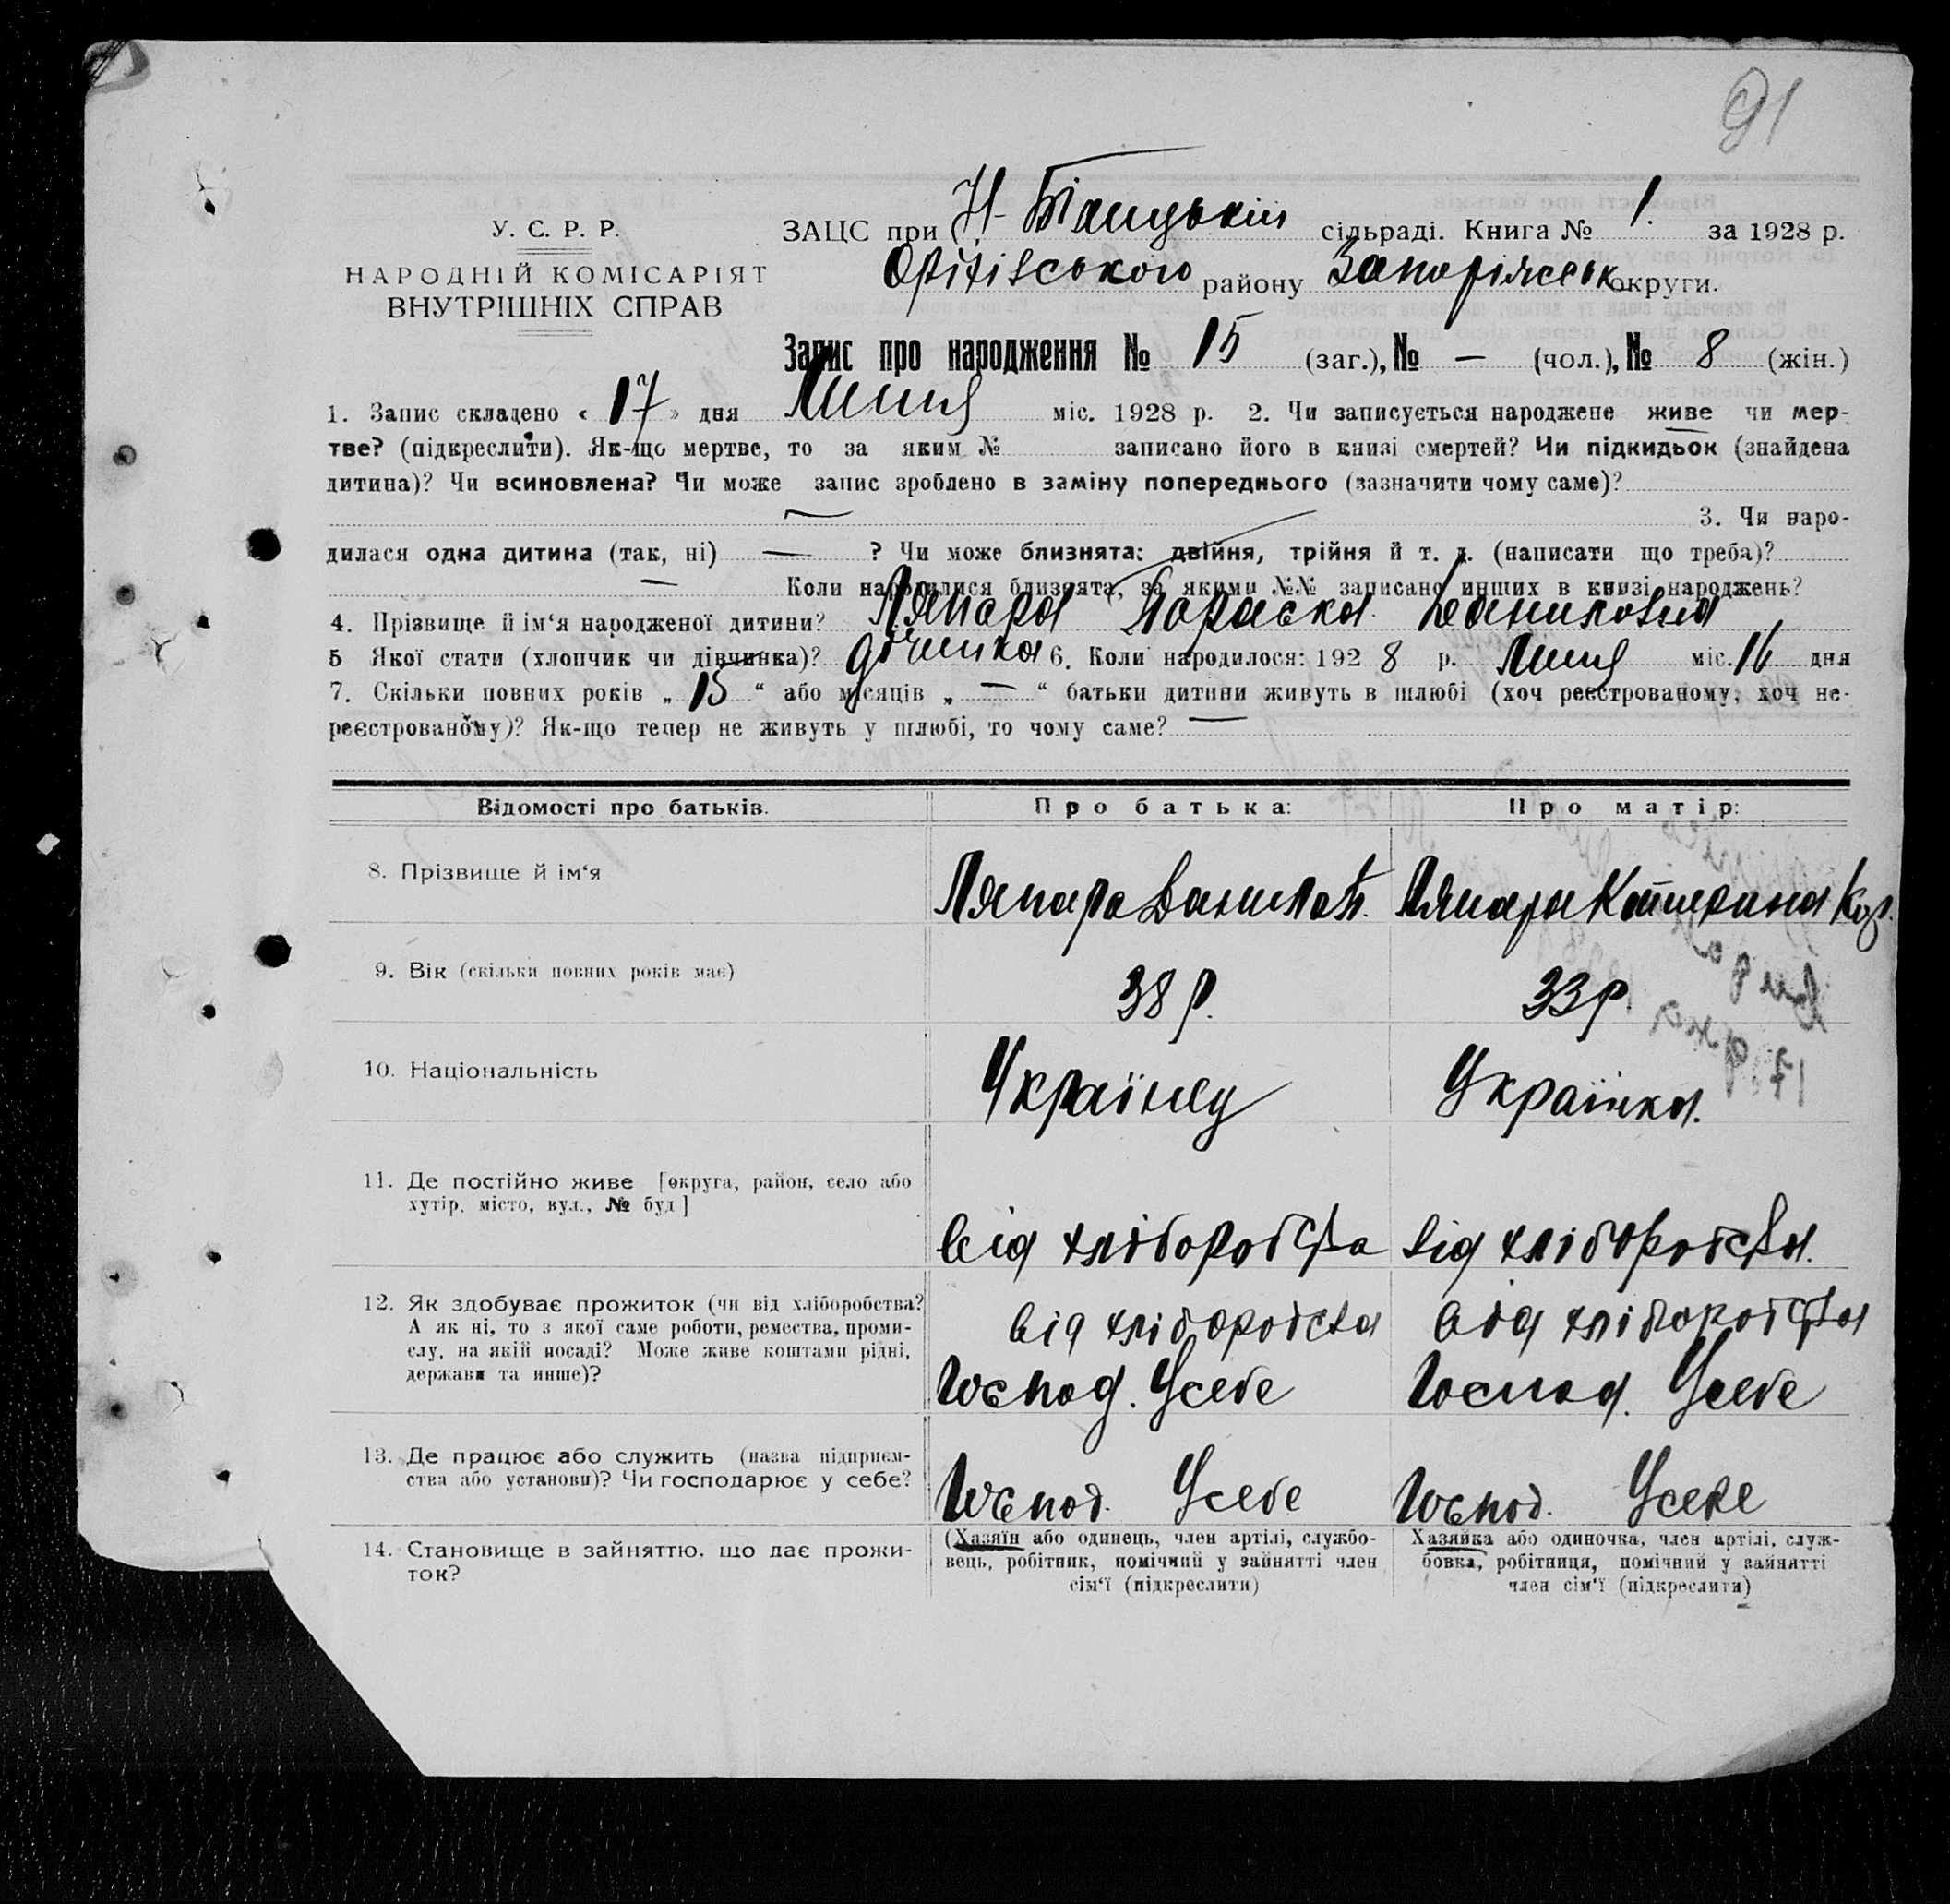 91
У. С. Р. Р.
НАРОДНІЙ КОМІСАРІЯТ
ВНУТРІШНІХ СПРАВ
ЗАЦС при Н- сільраді. Книга № 1. за 1928 р.
Оріхівського району Запоріжськ округи.
Запис про народження № 15 (заг.), № — (чол.), № 8 (жін.)
1. Запис складено « 17 » дня Липня міс. 1928 р. 2. Чи записується народжене живе чи мер-
тве? (підкреслити). Як-що мертве, то за яким № записано його в книзі смертей? Чи підкидьок (знайдена
дитина)? Чи всиновлена? Чи може запис зроблено в заміну попереднього (зазначити чому саме)?
— 3. Чи наро-
дилася одна дитина (так, ні) — ? Чи може близнята: двійня, трійня й т. д. (написати що треба)?
— Коли народилися близнята, за якими №№ записано инших в книзі народжень?
4. Прізвище й ім‘я народженої дитини? Ляпара Параска Даниловна
5 Якої стати (хлопчик чи дівчинка)? 6. Коли народилося: 1928 р. Липня міс. 16 дня
7. Скільки повних років „ 15 “ або місяців „ — “ батьки дитини живуть в шлюбі (хоч реєстрованому, хоч не-
реєстрованому)? Як-що тепер не живуть у шлюбі, то чому саме? —
Відомості про батьків. Про батька: Про матір:
8. Прізвище й ім‘я Ляпара Данило Ляпара Катерина
9. Вік (скільки повних років має) 38 р. 33 р.
10. Національність Українец Українка.
11. Де постійно живе [округа, район, село або
хутір, місто, вул., № буд]
від хліборобства від хліборобства.
12. Як здобуває прожиток (чи від хліборобства?
А як ні, то з якої саме роботи, ремества, проми-
слу, на якій посаді? Може живе коштами рідні,
держави та инше)?
від хліборобства від хліборобства
Господ. Усебе Господ. Усебе
13. Де працює або служить (назва підприєм-
ства або установи)? Чи господарює у себе?
Господ. Усебе Господ. Усебе
14. Становище в зайняттю, що дає прожи-
ток?
(Хазяїн або одинець, член артілі, службо-
вець, робітник, помічний у зайнятті член
сім‘ї (підкреслити)
Хазяйка або одиночка, член артілі, служ-
бовка, робітниця, помічний у зайнятті
член сім‘ї (підкреслити)